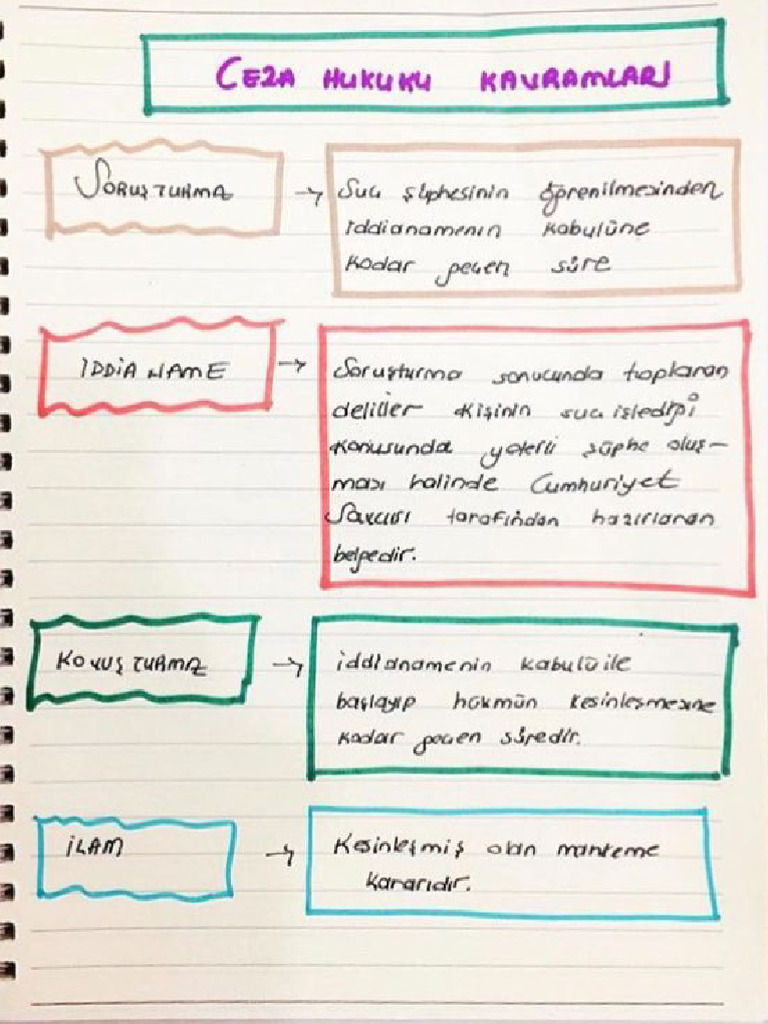 CEZA HUKUKU KAVRAMLARI
SORUŞTURMA →
Suç şüphesinin öğrenilmesinden
iddianamenin kabulüne
kadar geçen süre
İDDİANAME →
Soruşturma sonucunda toplanan
deliller kişinin suç işlediği
konusunda yeterli şüphe oluş-
ması halinde Cumhuriyet
Savcısı tarafından hazırlanan
belgedir.
KOVUŞTURMA →
iddianamenin kabulü ile
başlayıp hükmün kesinleşmesine
kadar geçen süredir.
İLAM →
Kesinleşmiş olan mahkeme
kararıdır.